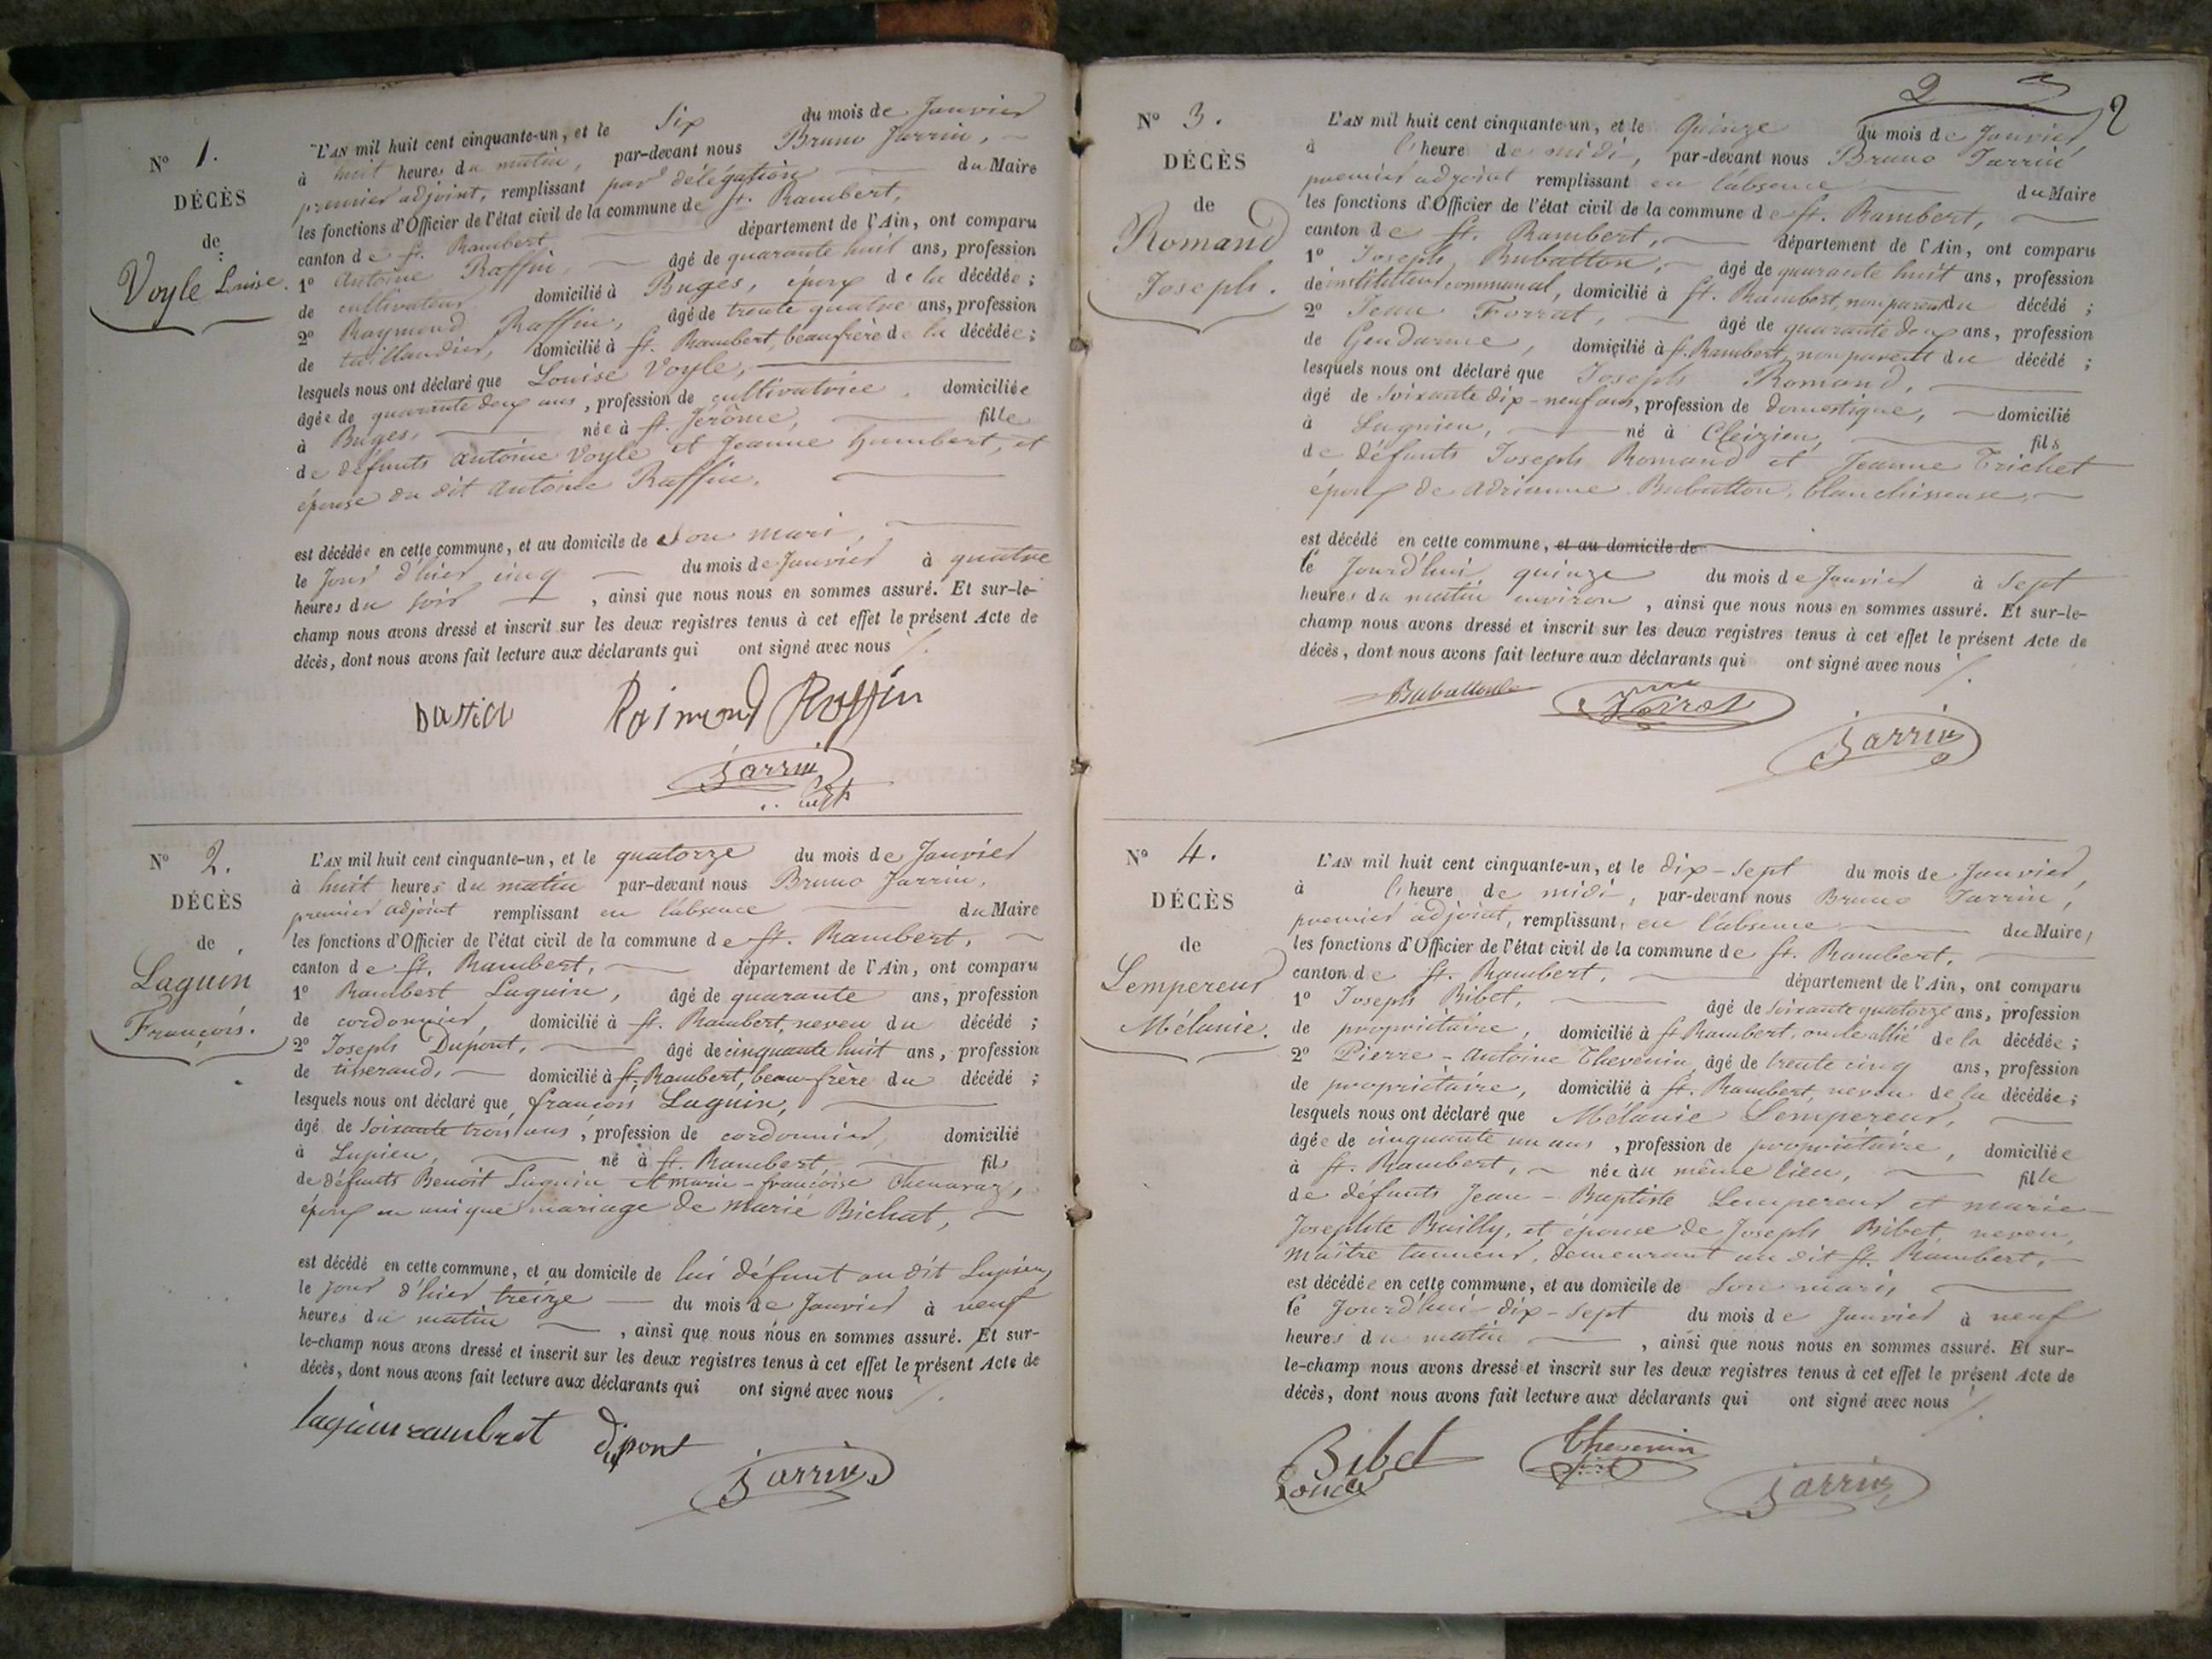 N° 1.
DÉCÈS
de
Voyle Louise.
L'AN mil huit cent cinquante-un, et le Six du mois de Janvier
à huit heures du matin, par-devant nous Bruno Jarrin,
premier adjoint, remplissant par délégation du Maire
les fonctions d'Officier de l'état civil de la commune de St. Rambert,
canton de St. Rambert département de l'Ain, ont comparu
1° Antoine Raffin, âgé de quarante huit ans, profession
de cultivateur domicilié à Buges, époux de la décédée ;
2° Raymond Raffin, âgé de trente quatre ans, profession
de taillandier, domicilié à St. Rambert, beaufrère de la décédée ;
lesquels nous ont déclaré que Louise Voyle,
âgée de quarante deux ans, profession de cultivatrice, domiciliée
à Buges, née à St. Jérôme, fille
de défunts Antoine Voyle et Jeanne Humbert, et
épouse du dit Antoine Raffin.
est décédée en cette commune, et au domicile de son mari,
le jour d'hier cinq du mois de Janvier à quatre
heures du soir, ainsi que nous nous en sommes assuré. Et sur-le-
champ nous avons dressé et inscrit sur les deux registres tenus à cet effet le présent Acte de
décès, dont nous avons fait lecture aux déclarants qui ont signé avec nous
Raimond Raffin
Jarrin
N° 2.
DÉCÈS
de
Laguin
François.
L'AN mil huit cent cinquante-un, et le quatorze du mois de Janvier
à huit heures du matin par-devant nous Bruno Jarrin,
premier adjoint remplissant en l'absence du Maire
les fonctions d'Officier de l'état civil de la commune de St. Rambert,
canton de St. Rambert, département de l'Ain, ont comparu
1° Rambert Laguin, âgé de quarante ans, profession
de cordonnier, domicilié à St. Rambert, neveu du décédé ;
2° Joseph Dupont, âgé de cinquante huit ans, profession
de tisserand, domicilié à St. Rambert, beau-frère du décédé ;
lesquels nous ont déclaré que françois Laguin,
âgé de soixante trois ans, profession de cordonnier, domicilié
à Lupieu, né à St. Rambert, fils
de défunts Benoit Laguin et marie-françoise Chenavaz,
époux en unique mariage de Marie Bichat,
est décédé en cette commune, et au domicile de lui défunt au dit Lupieu,
le jour d'hier treize du mois de Janvier à neuf
heures du matin, ainsi que nous nous en sommes assuré. Et sur-
le-champ nous avons dressé et inscrit sur les deux registres tenus à cet effet le présent Acte de
décès, dont nous avons fait lecture aux déclarants qui ont signé avec nous
laguin rambert dupont
Jarrin
2
2
N° 3.
DÉCÈS
de
Romand
Joseph.
L'AN mil huit cent cinquante-un, et le Quinze du mois de Janvier,
à l'heure de midi, par-devant nous Bruno Jarrin
premier adjoint remplissant en l'absence du Maire
les fonctions d'Officier de l'état civil de la commune de St. Rambert,
canton de St. Rambert, département de l'Ain, ont comparu
1° Joseph Bubatton, âgé de quarante huit ans, profession
de instituteur communal, domicilié à St. Rambert, non parent du décédé ;
2° Jean Forrat, âgé de quarante deux ans, profession
de Gendarme, domicilié à St. Rambert, non parent du décédé ;
lesquels nous ont déclaré que Joseph Romand,
âgé de soixante dix-neuf ans, profession de domestique, domicilié
à Lagnieu, né à Cleizieu, fils
de défunts Joseph Romand et Jeanne Trichet
époux de Adrienne Bubatton, blanchisseuse,
est décédé en cette commune, et au domicile de
le jourd'hui quinze du mois de Janvier à sept
heures du matin environ, ainsi que nous nous en sommes assuré. Et sur-le-
champ nous avons dressé et inscrit sur les deux registres tenus à cet effet le présent Acte de
décès, dont nous avons fait lecture aux déclarants qui ont signé avec nous
Jarrin
N° 4.
DÉCÈS
de
Lempereur
Mélanie.
L'AN mil huit cent cinquante-un, et le dix-sept du mois de Janvier,
à l'heure de midi, par-devant nous Bruno Jarrin,
premier adjoint, remplissant, en l'absence du Maire,
les fonctions d'Officier de l'état civil de la commune de St. Rambert,
canton de St. Rambert, département de l'Ain, ont comparu
1° Joseph Bibet, âgé de soixante quatorze ans, profession
de propriétaire, domicilié à St Rambert, oncle allié de la décédée ;
2° Pierre-Antoine Thevenin, âgé de trente cinq ans, profession
de propriétaire, domicilié à St. Rambert, neveu de la décédée ;
lesquels nous ont déclaré que Mélanie Lempereur,
âgée de cinquante un ans, profession de propriétaire, domiciliée
à St. Rambert, née au même lieu, fille
de défunts Jean-Baptiste Lempereur et marie
Josephte Brailly, et épouse de Joseph Bibet, neveu,
maître tanneur, demeurant au dit St. Rambert,
est décédée en cette commune, et au domicile de son mari,
le jourd'hui dix-sept du mois de Janvier à neuf
heures du matin, ainsi que nous nous en sommes assuré. Et sur-
le-champ nous avons dressé et inscrit sur les deux registres tenus à cet effet le présent Acte de
décès, dont nous avons fait lecture aux déclarants qui ont signé avec nous
Bibet Thevenin
oncle
Jarrin